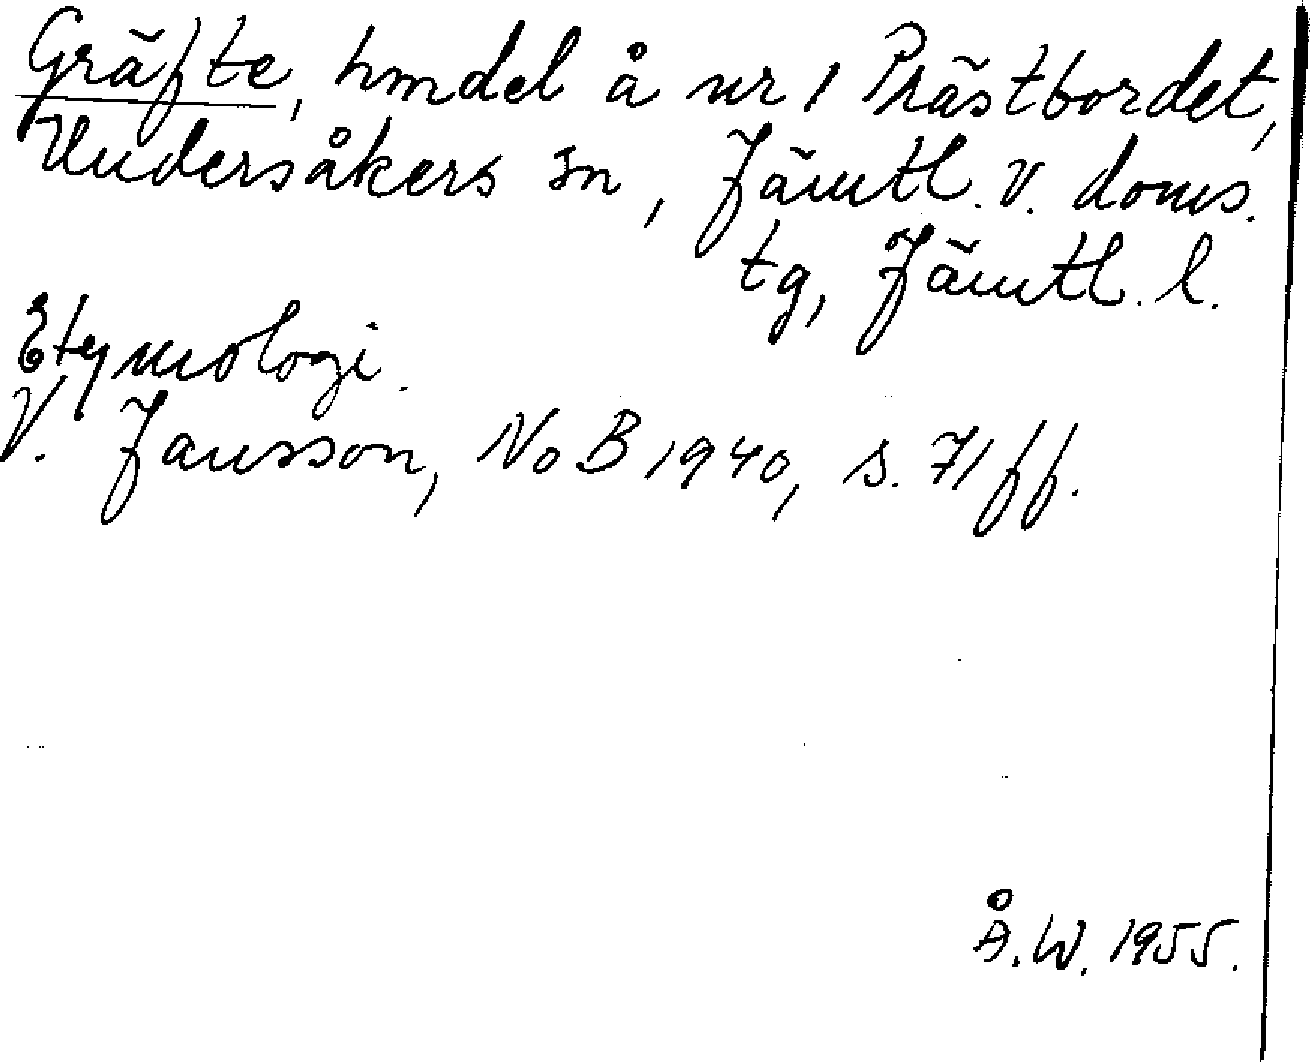 Gräfte, hmdel å nr 1 Prästbordet,
Undersåkers sn, Jämtl. v. doms.
tg, Jämtl. l.
Etymologi.
V. Jansson, NoB 1940, s. 71 ff.
Å.W. 1955.